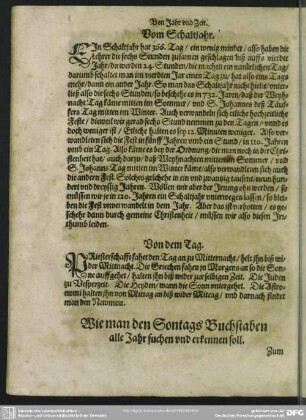 Von Jahr vnd Zeit.
Vom Schaltjahr.
EIn Schaltjahr hat 366. Tag / ein wenig minder / also haben die
Lehrer die sechs Stunden zusamen geschlagen biß auffs vierdte
Jahr / da werden 24. Stunden / die machen ein natürlichen Tag /
darumb schaltet man im vierdten Jar einen Tag zu / hat also eins Tags
mehr / dann ein ander Jahr. So man das Schaltjahr nicht hielt / vnter-
ließ also die sechs Stunden / so beschehe es in 732. Jarn / daß der Weyh-
nacht Tag käme mitten im Sommer / vnd S. Johannes deß Täuf-
fers Tag mitten im Winter. Auch verwandeln sich etliche hochzeitliche
Feste / dieweil wir gerad sechs Stund nemmen zu den Tagen / vnnd es
doch weniger ist / Etliche halten es sey 12. Minuten weniger. Also ver-
wandlen sich die Fest in fünff Jaren vmb ein Stund / in 120. Jaren
vmb ein Tag. Also käme es bey der Ordnung / die man noch in der Chri-
stenheit hat / auch darzu / daß Weyhnachten mitten im Sommer / vnd
S. Johanns Tag mitten im Winter käme / also verwandlen sich auch
die andern Fest. Solchs geschehe in ein vnd zwantzig tausend / neun hun-
dert vnd dreyssig Jahren. Wöllen wir aber der Irrung ohn werden / so
müssen wir je in 120. Jahren ein Schaltjahr vnterwegen lassen / so blei-
ben die Fest vnverwandelt in dem Jahr. Aber das ist verbotten / es ge-
schehe dann durch gemeine Christenheit / müssen wir also diesen Irr-
thumb leiden.
Von dem Tag.
PRiesterschafft fahet den Tag an zu Mitternacht / helt ihn biß wi-
der Mitnacht. Die Griechen fahen zu Morgens an so die Son-
ne auffgehet / halten ihn biß wider zur selbigen Zeit. Die Juden
zu Vesperzeit. Die Heyden / wann die Sonn vntergehet. Die Astro-
nomi halten ihn von Mittag an biß wider Mittag / vnd darnach findet
man den Newmon.
Wie man den Sontags Buchstaben
alle Jahr suchen vnd erkennen soll.
Zum